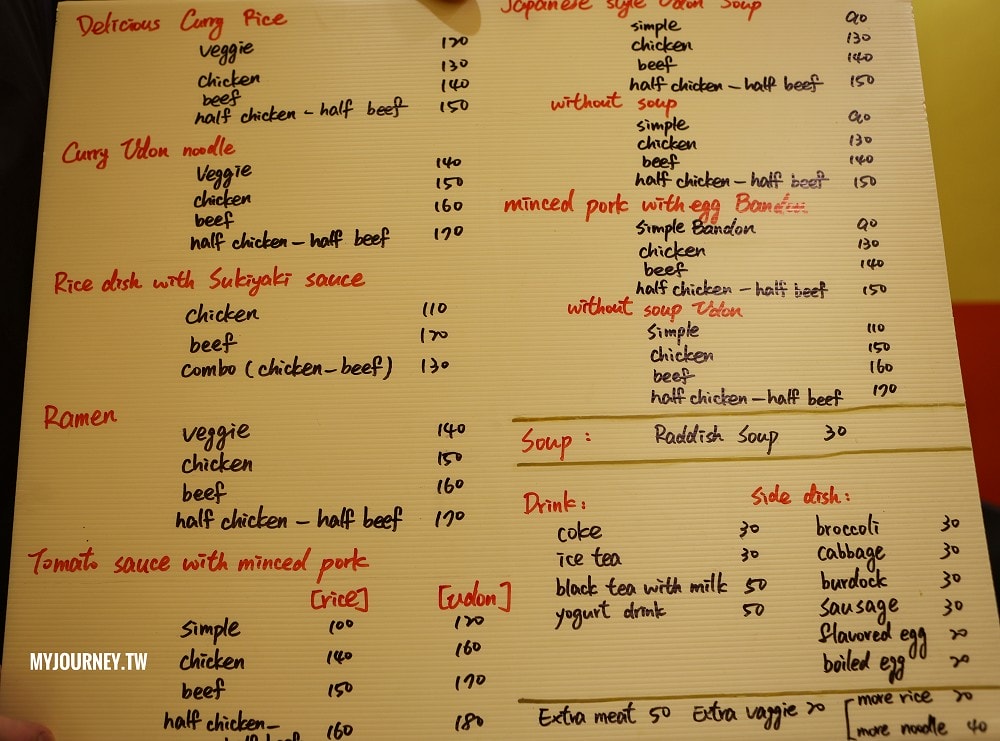 Delicious Curry Rice
veggie 120
chicken 130
beef 140
half chicken - half beef 150
Curry Udon noodle
Veggie 140
chicken 150
beef 160
half chicken - half beef 170
Rice dish with Sukiyaki sauce
chicken 110
beef 120
combo (chicken-beef) 130
Ramen
veggie 140
chicken 150
beef 160
half chicken - half beef 170
Tomato sauce with minced pork
[rice] [udon]
simple 100 120
chicken 140 160
beef 150 170
half chicken- 160 180
half beef
Japanese style Udon Soup
simple 90
chicken 130
beef 140
half chicken - half beef 150
without soup
simple 90
chicken 130
beef 140
half chicken - half beef 150
minced pork with egg Bandon
simple Bandon 90
chicken 130
beef 140
half chicken - half beef 150
without soup Udon
simple 110
chicken 150
beef 160
half chicken - half beef 170
Soup: Raddish Soup 30
Drink:
coke 30
ice tea 30
black tea with milk 50
yogurt drink 50
Side dish:
broccoli 30
cabbage 30
burdock 30
sausage 30
flavored egg 20
boiled egg 20
Extra meat 50 Extra vaggie 20
more rice 20
more noodle 40
MYJOURNEY.TW